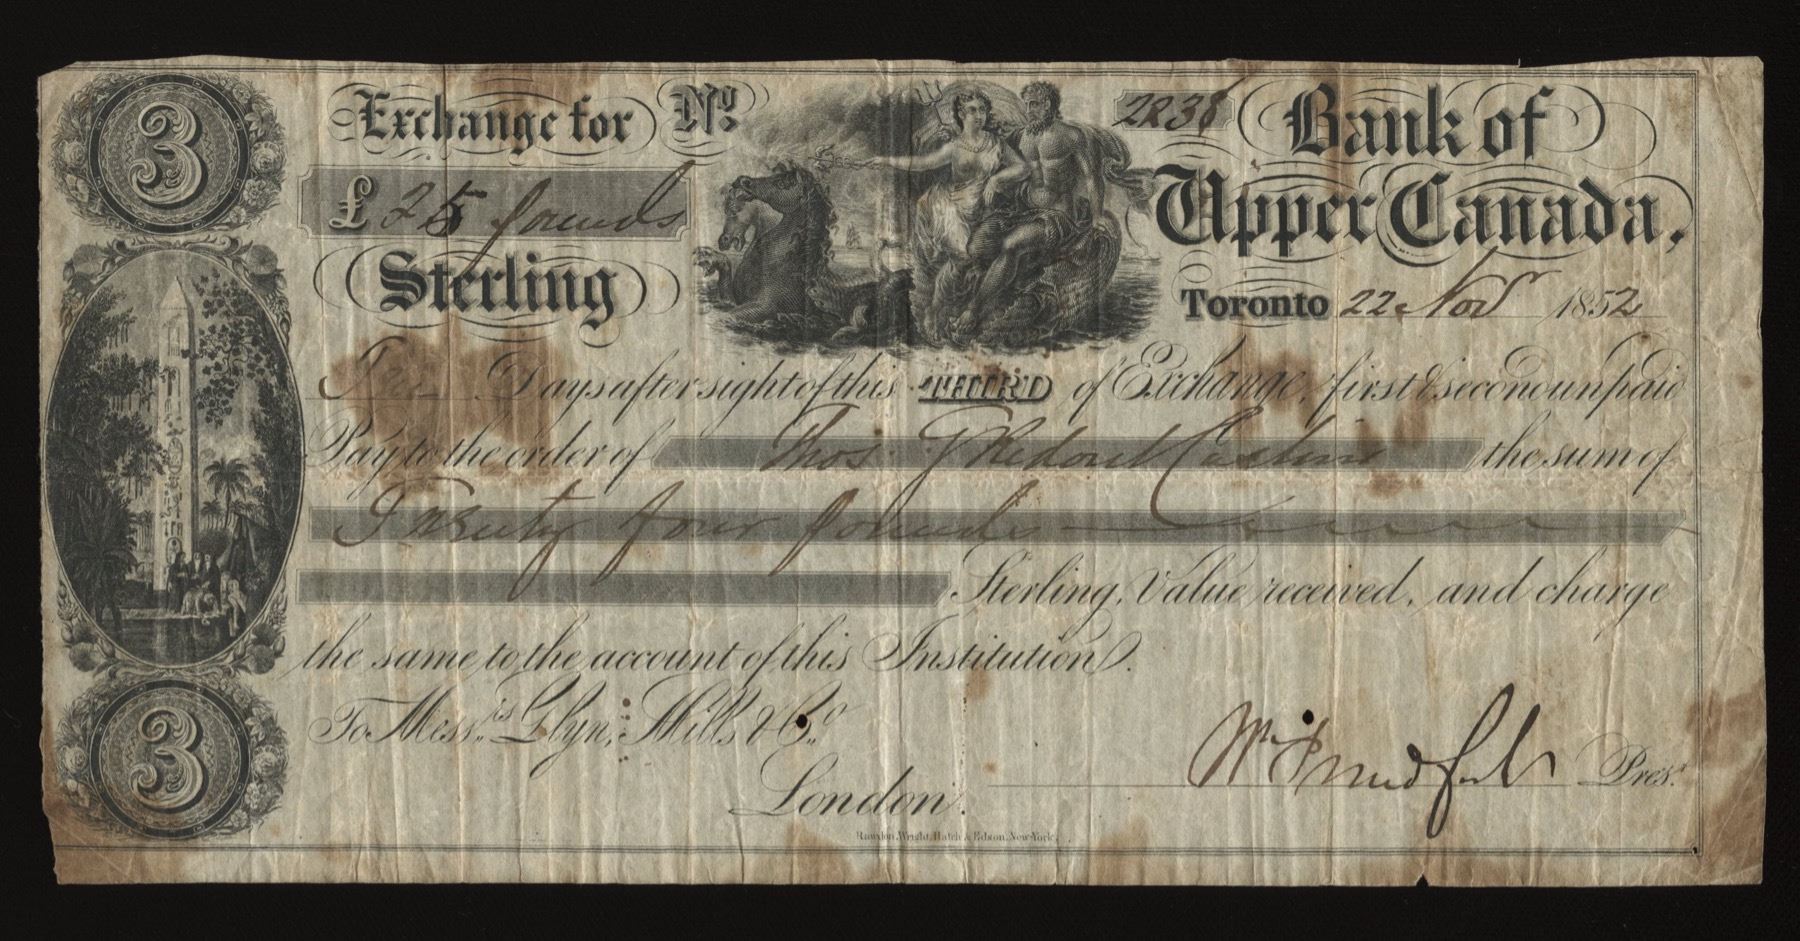 3
Exchange for No. 2238
£ 25 pounds
Sterling
Bank of
Upper Canada,
Toronto 22 Nov 1852
Days after sight of this THIRD of Exchange, first & second unpaid
Pay to the order of Thos. G Ridout Cashier the sum of
Twenty four pounds
Sterling, Value received, and charge
the same to the account of this Institution.
To Messrs. Glyn, Mills & Co.
London.
Wm Pres.t
3
Rawdon, Wright, Hatch & Edson, New-York.